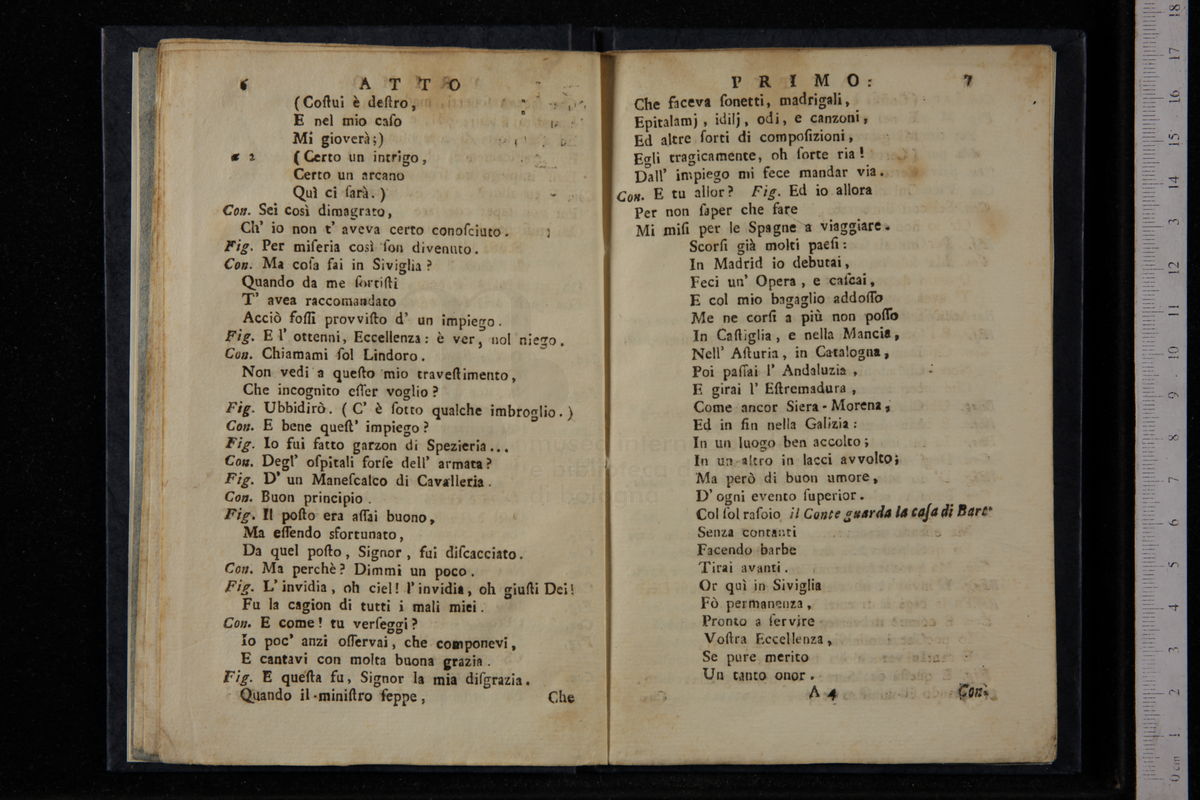 6 ATTO
(Coſtui è deſtro,
E nel mio caſo
Mi gioverà;)
a 2 (Certo un intrigo,
Certo un arcano
Quì ci ſarà.)
Con. Sei così dimagrato,
Ch' io non t' aveva certo conoſciuto.
Fig. Per miſeria così ſon divenuto.
Con. Ma coſa fai in Siviglia?
Quando da me ſortiſti
T' avea raccomandato
Acciò foſſi provviſto d' un impiego.
Fig. E l' ottenni, Eccellenza: è ver, nol niego.
Con. Chiamami ſol Lindoro.
Non vedi a queſto mio traveſtimento,
Che incognito eſſer voglio?
Fig. Ubbidirò. (C' è ſotto qualche imbroglio.)
Con. E bene queſt' impiego?
Fig. Io fui fatto garzon di Spezieria...
Con. Degl' oſpitali forſe dell' armata?
Fig. D' un Maneſcalco di Cavalleria.
Con. Buon principio.
Fig. Il poſto era aſſai buono,
Ma eſſendo sfortunato,
Da quel poſto, Signor, fui diſcacciato.
Con. Ma perchè? Dimmi un poco.
Fig. L' invidia, oh ciel! l' invidia, oh giuſti Dei!
Fu la cagion di tutti i mali miei.
Con. E come! tu verſeggi?
Io poc' anzi oſſervai, che componevi,
E cantavi con molta buona grazia.
Fig. E queſta fu, Signor la mia diſgrazia.
Quando il miniſtro ſeppe,
Che
PRIMO: 7
Che faceva ſonetti, madrigali,
Epitalamj, idilj, odi, e canzoni,
Ed altre ſorti di compoſizioni,
Egli tragicamente, oh ſorte ria!
Dall' impiego mi fece mandar via.
Con. E tu allor? Fig. Ed io allora
Per non ſaper che fare
Mi miſi per le Spagne a viaggiare.
Scorſi già molti paeſi:
In Madrid io debutai,
Feci un' Opera, e caſcai,
E col mio bagaglio addoſſo
Me ne corſi a più non poſſo
In Caſtiglia, e nella Mancia,
Nell' Aſturia, in Catalogna,
Poi paſſai l' Andaluzia,
E girai l' Eſtremadura,
Come ancor Siera-Morena,
Ed in fin nella Galizia:
In un luogo ben accolto;
In un altro in lacci avvolto;
Ma però di buon umore,
D' ogni evento ſuperior.
Col ſol raſoio il Conte guarda la caſa di Bart.
Senza contanti
Facendo barbe
Tirai avanti.
Or quì in Siviglia
Fò permanenza,
Pronto a ſervire
Voſtra Eccellenza,
Se pure merito
Un tanto onor.
A 4 Con.
museo intern
biblioteca
di bologna
0 cm 1 2 3 4 5 6 7 8 9 10 11 12 13 14 15 16 17 18